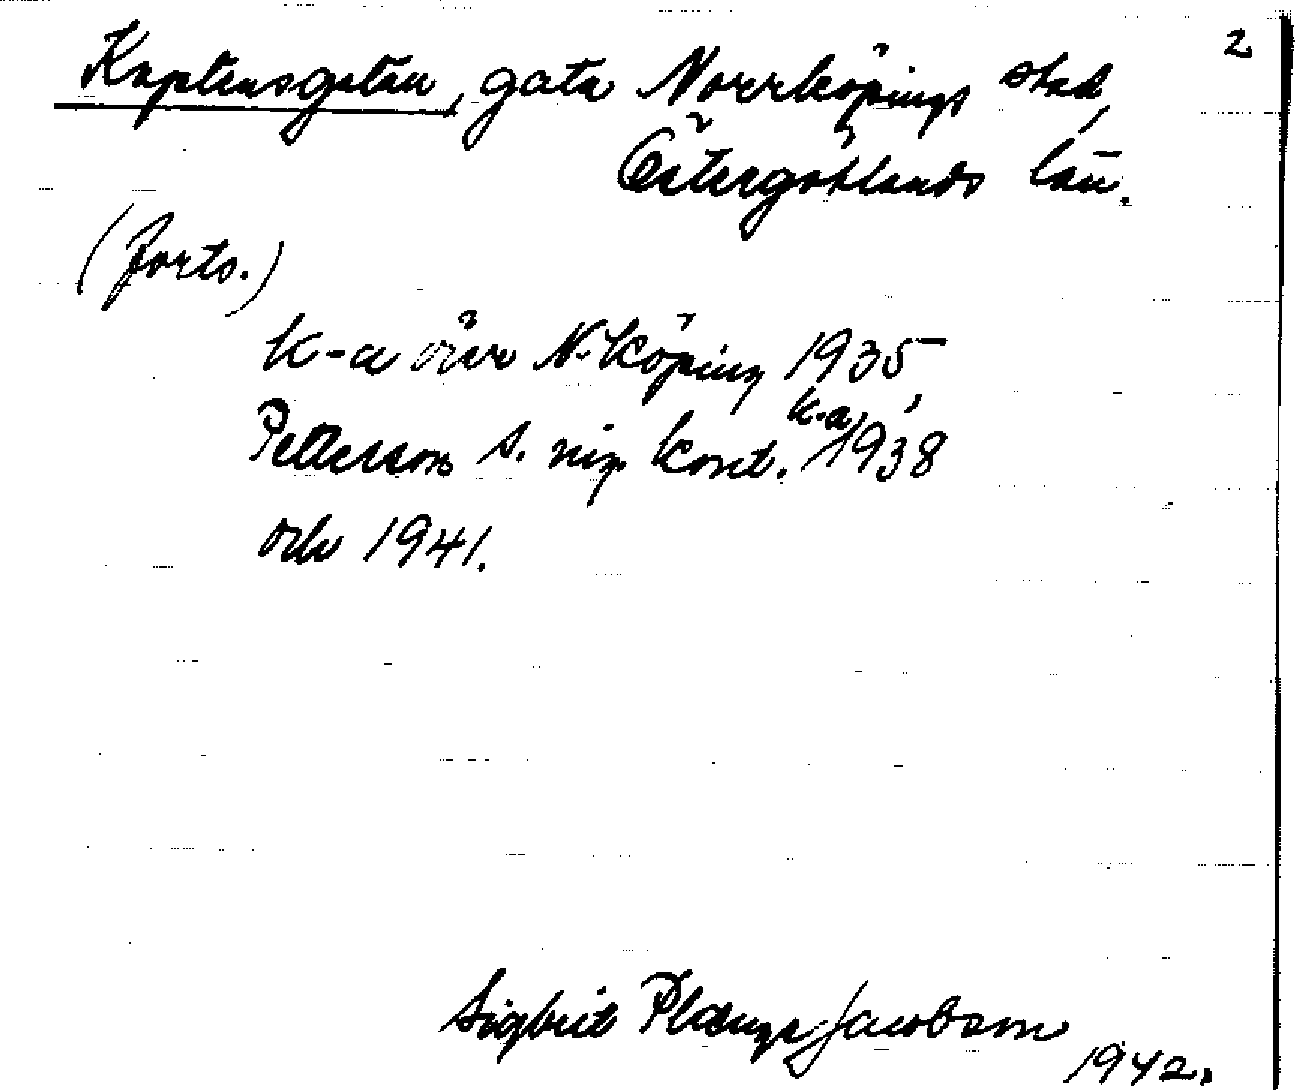 2
Kaptensgatan, gata Norrköpings stad,
Östergötlands län.
(forts.)
K-a över N-köping 1935,
Petterson s. nip. kont. k-a, 1938
och 1941.
Sigbrit Plænge Jacobson
1942.